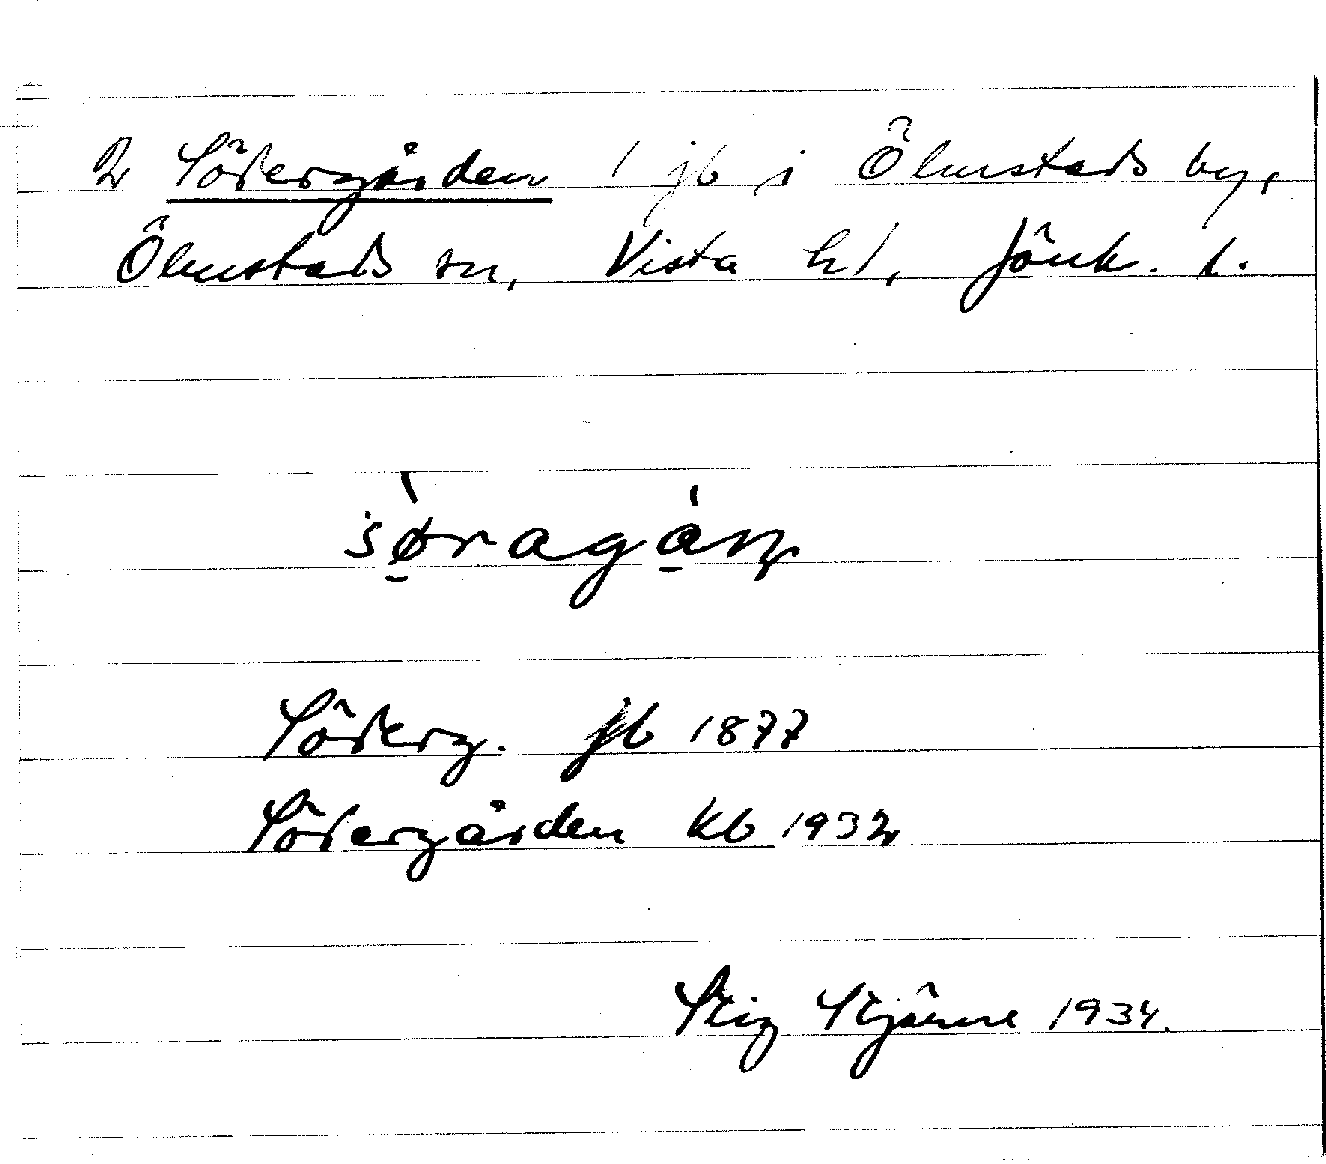 2 Södergården 1 jb i Ölmstads by,
Ölmstads sn, Vista hd, Jönk. l.
sø̱̀ragá̱ṇ
Söderg. jb 1877
Södergården kb 1932
Stig Stjärne 1934.